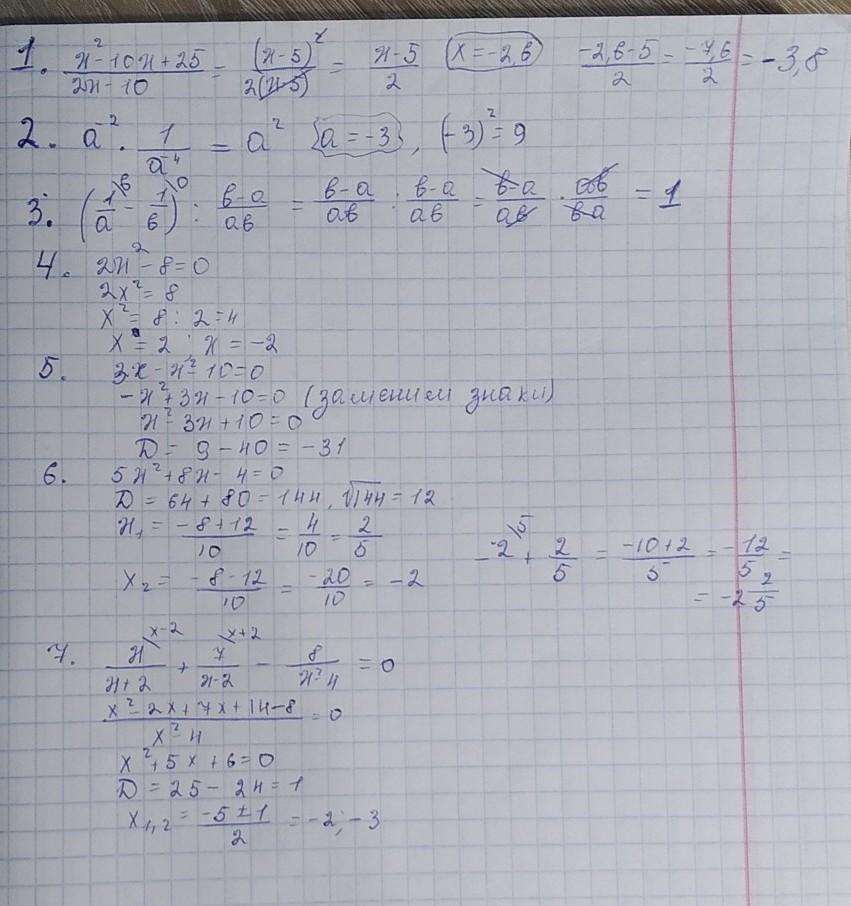 1. (x²-10x+25)/(2x-10) = (x-5)²/(2(x-5)) = (x-5)/2 (x = -2,6) (-2,6-5)/2 = -7,6/2 = -3,8
2. a⁻² · 1/a⁻⁴ = a² {a = -3}, (-3)² = 9
3. (1/a \в - 1/в \a) : (в-a)/(aв) = (в-a)/(aв) : (в-a)/(aв) = (в-a)/(aв) · (aв)/(в-a) = 1
4. 2x² - 8 = 0
2x² = 8
x² = 8 : 2 = 4
x = 2 ; x = -2
5. 3x - x² - 10 = 0
-x² + 3x - 10 = 0 (заменим знаки)
x² - 3x + 10 = 0
D = 9 - 40 = -31
6. 5x² + 8x - 4 = 0
D = 64 + 80 = 144, √144 = 12
x₁ = (-8+12)/10 = 4/10 = 2/5
-2 \5 + 2/5 = (-10+2)/5 = -12/5 =
x₂ = (-8-12)/10 = -20/10 = -2
= -2 2/5
7. x/(x+2) \x-2 + 7/(x-2) \x+2 - 8/(x²-4) = 0
(x² - 2x + 7x + 14 - 8)/(x²-4) = 0
x² + 5x + 6 = 0
D = 25 - 24 = 1
x₁,₂ = (-5 ± 1)/2 = -2 ; -3